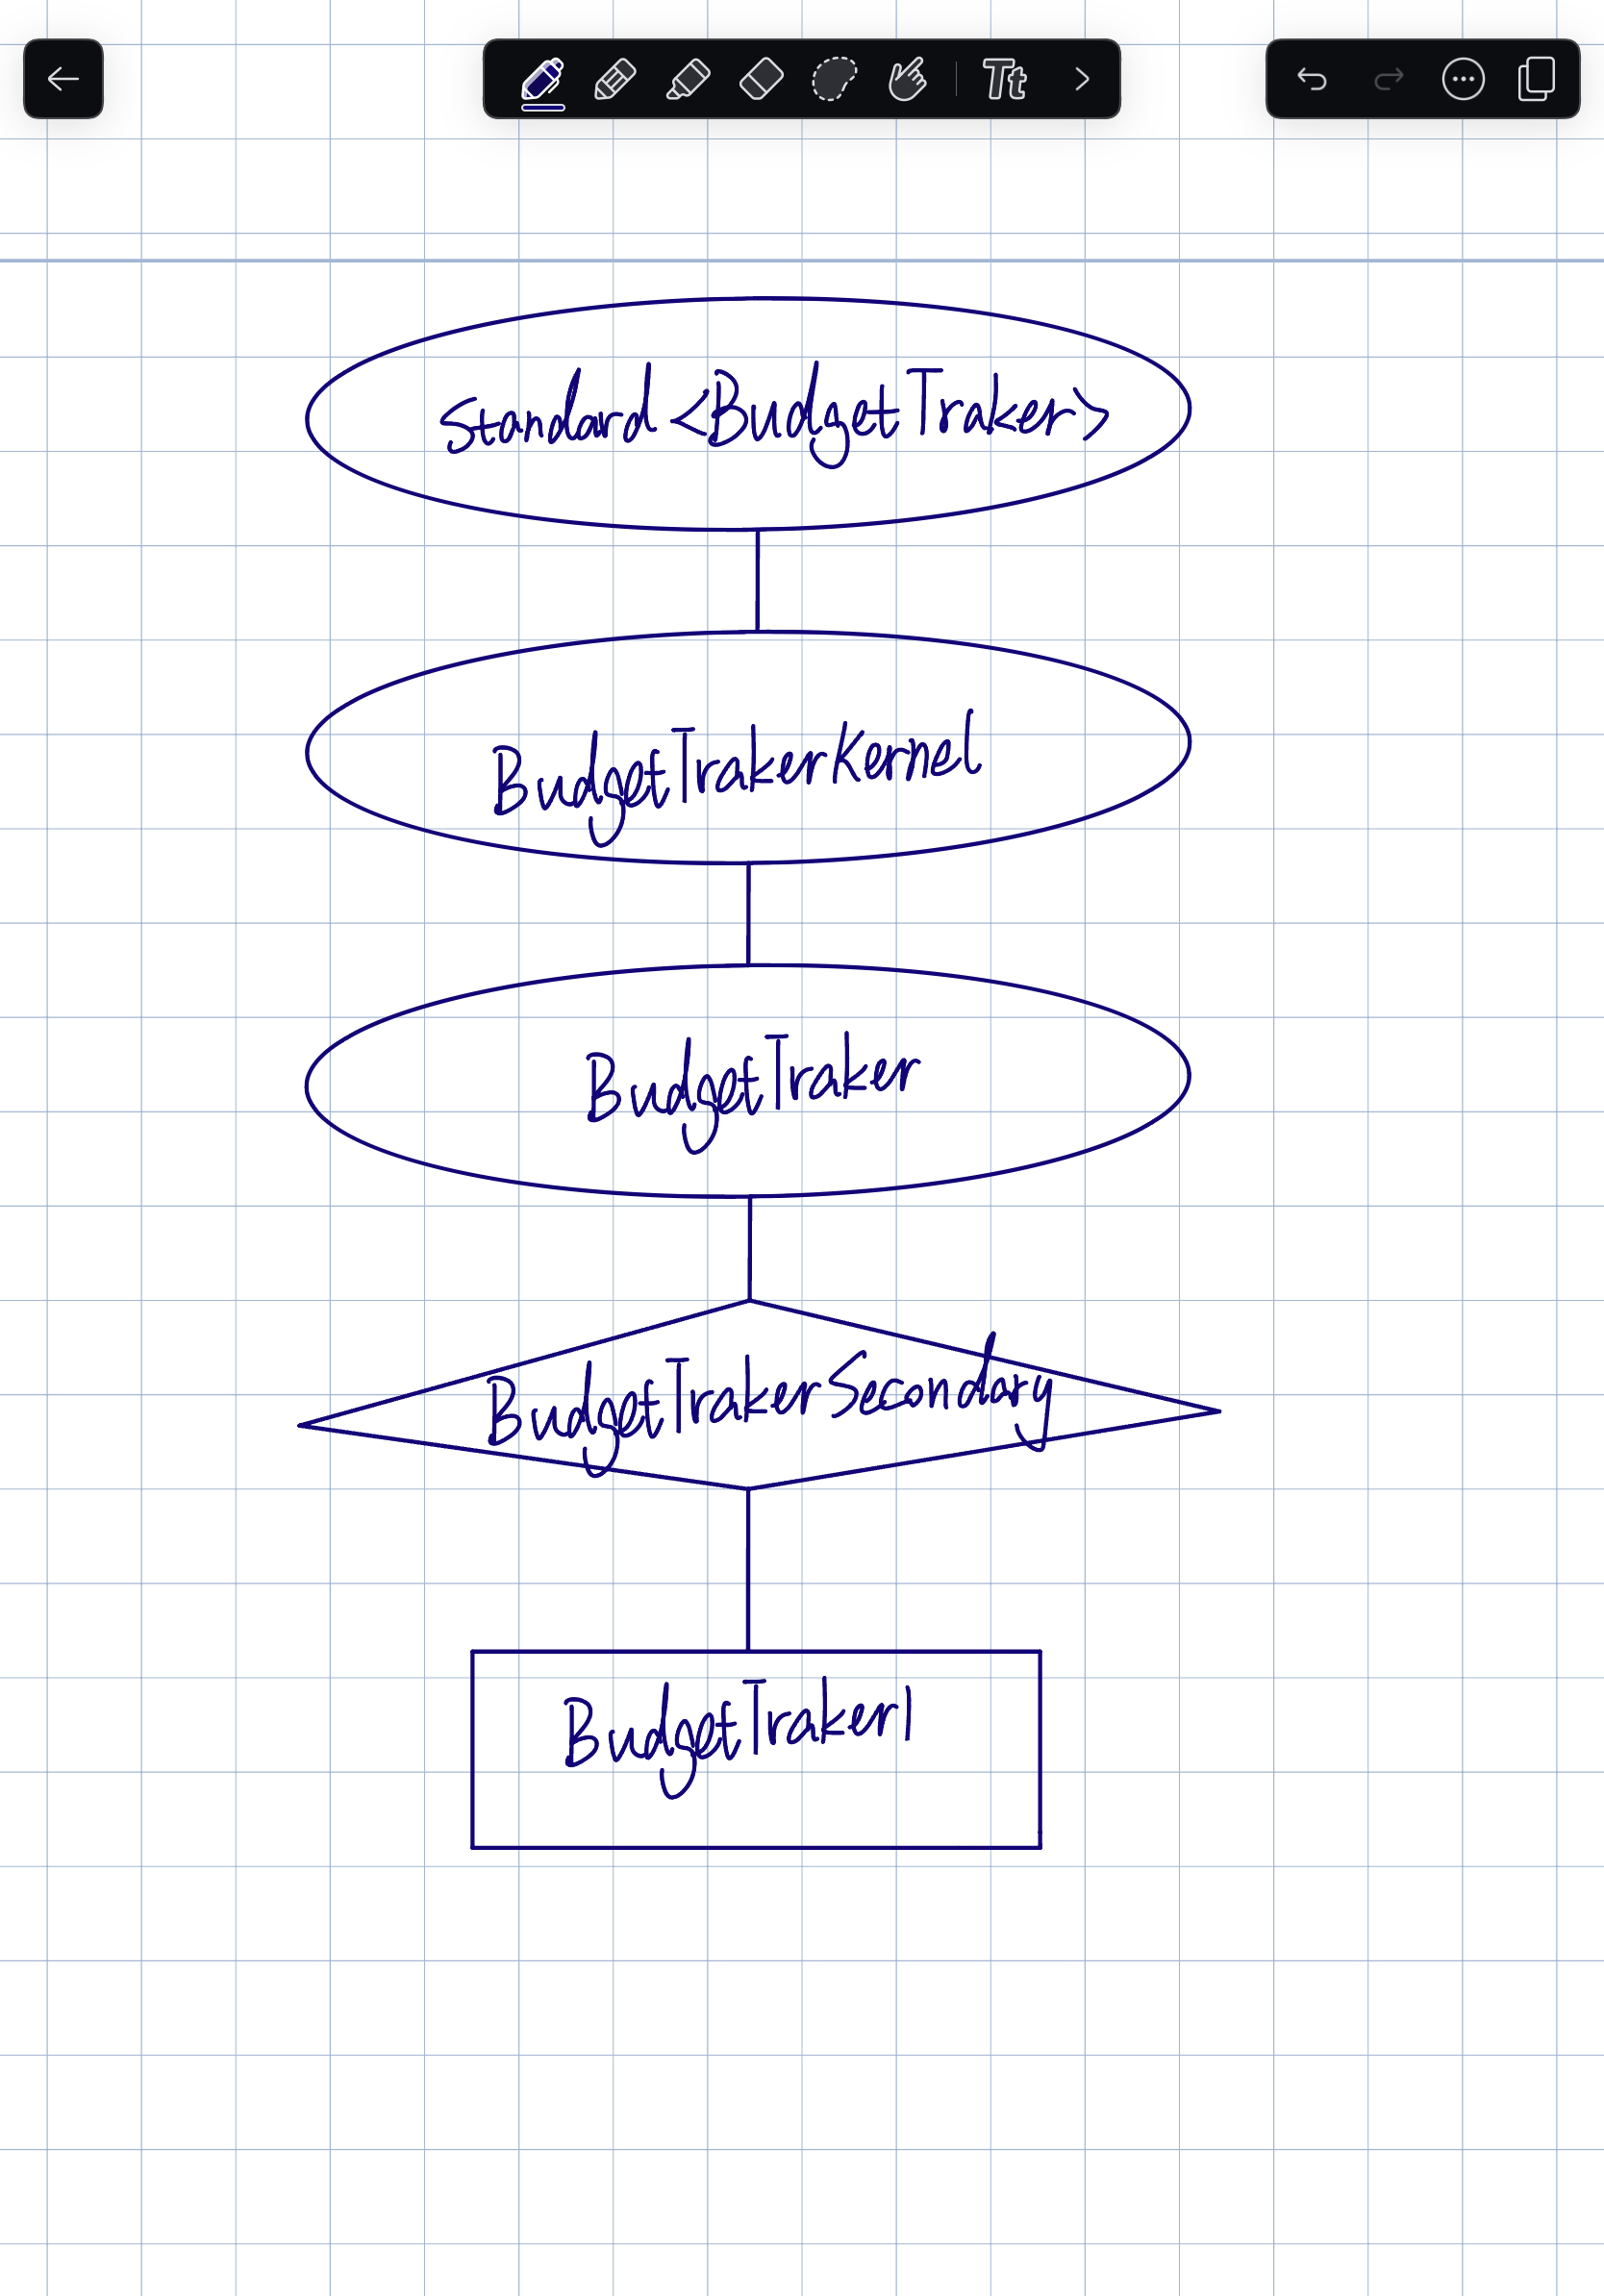 Tt
Standard <BudgetTraker>
BudgetTrakerKernel
BudgetTraker
BudgetTrakerSecondary
BudgetTraker1